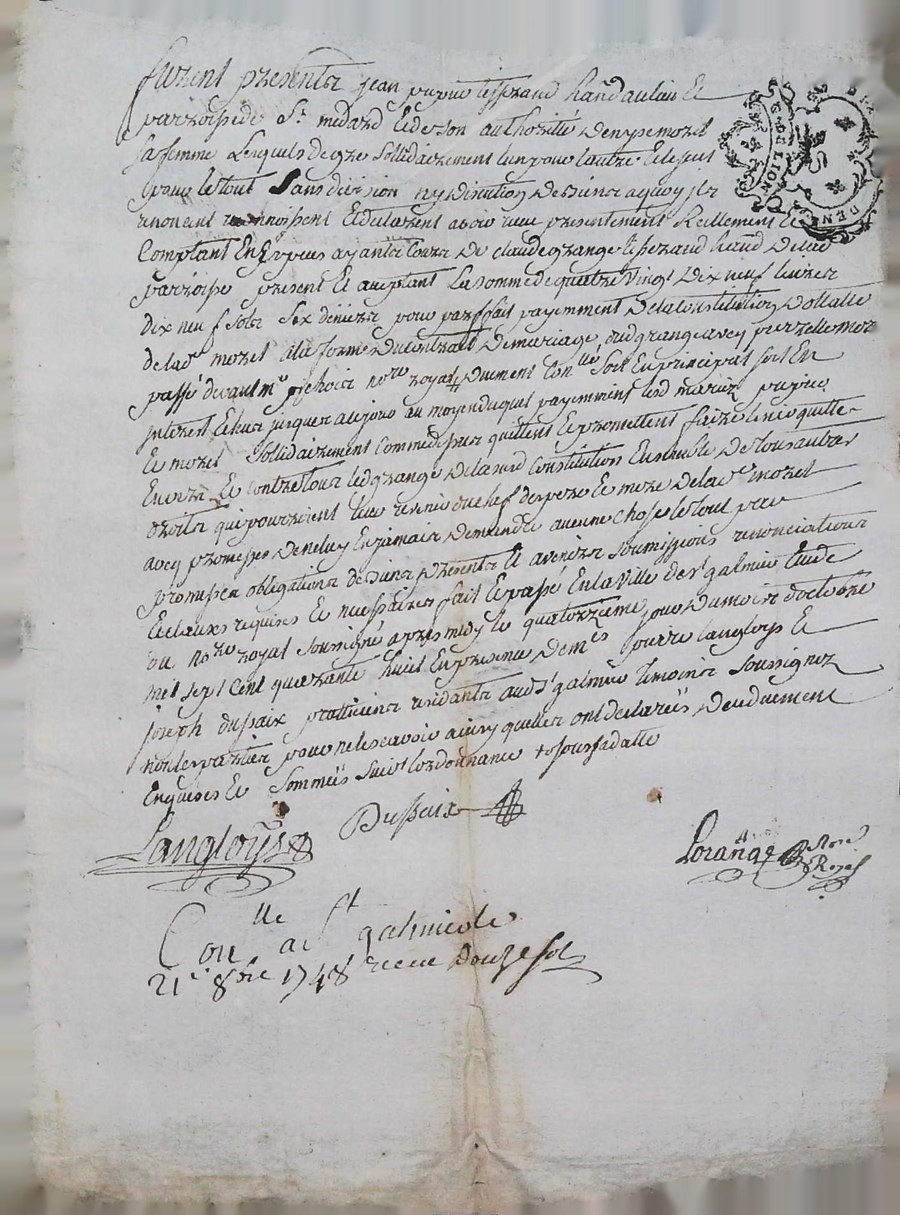 furent presents jean pupie tisserand hand au lau et
parroisse de St medard et de son authoritté denyse morel
sa femme Lesquels de gre sollidairement lun pour lautre et le seul
pour le tout Sans division ny diention de Biens a quoy ils
renoncent reconnoissent Et declarent avoir receu presentement Reellement Et
Comptant En Especes ayants Cours de claude grange tisserand hand de lad
parroisse present Et acceptant La somme de quatre vingt dix neuf livres
dix neuf sols six deniers pour parffait payemment de la Constitution dottalle
de lade morel a la forme du contrat de mariage dud grange avec morel
passé devant me nore royal duement Conlle soit En principal soit En
jnterest Et aux jusques a ce jour au moyen duquel payemment lesd mariez pupie
Et morel sollidairement Comme dessus quittent Et promettent faire tenir quitte
Envers Et Contre tous led grange de lad Constitution Ensemble de tous autres
droits qui pourroient leur revenir du chef des pere Et mere de lade morel
avec promesses de ne luy En jamais demander aucune chose le tout par
promesses obligations de Biens presents Et avenirs soumissions renonciations
Et clauses requises Et necessaires fait Et passé En la ville de St galmier Etude
du nore royal soussigné apres midy le quatorzieme jour du mois doctobre
mil sept cent quarante huit En presence de mes pierre langloys Et
joseph dupaix pratticiens residants aud St galmier temoins soussignez
non les parties pour ne le scavoir ainsy quelles ont declarées de ce duement
Enquises Et sommées suivt Lordonnance
Langloys
Dupaix
Lorange Nore Royal
Conlle a St galmier le
21e 8bre 1748 receu douze sols
G. DE LION
DEN